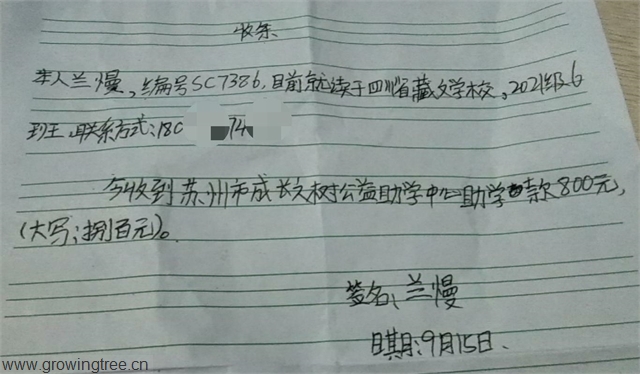 收条
本人兰熳,编号SC7386,目前就读于四川省藏文学校,2021级6
班,联系方式:180 74
今收到苏州市成长树公益助学中心助学款800元,
(大写:捌百元)。
签名、兰熳
日期:9月15日.
www.growingtree.cn